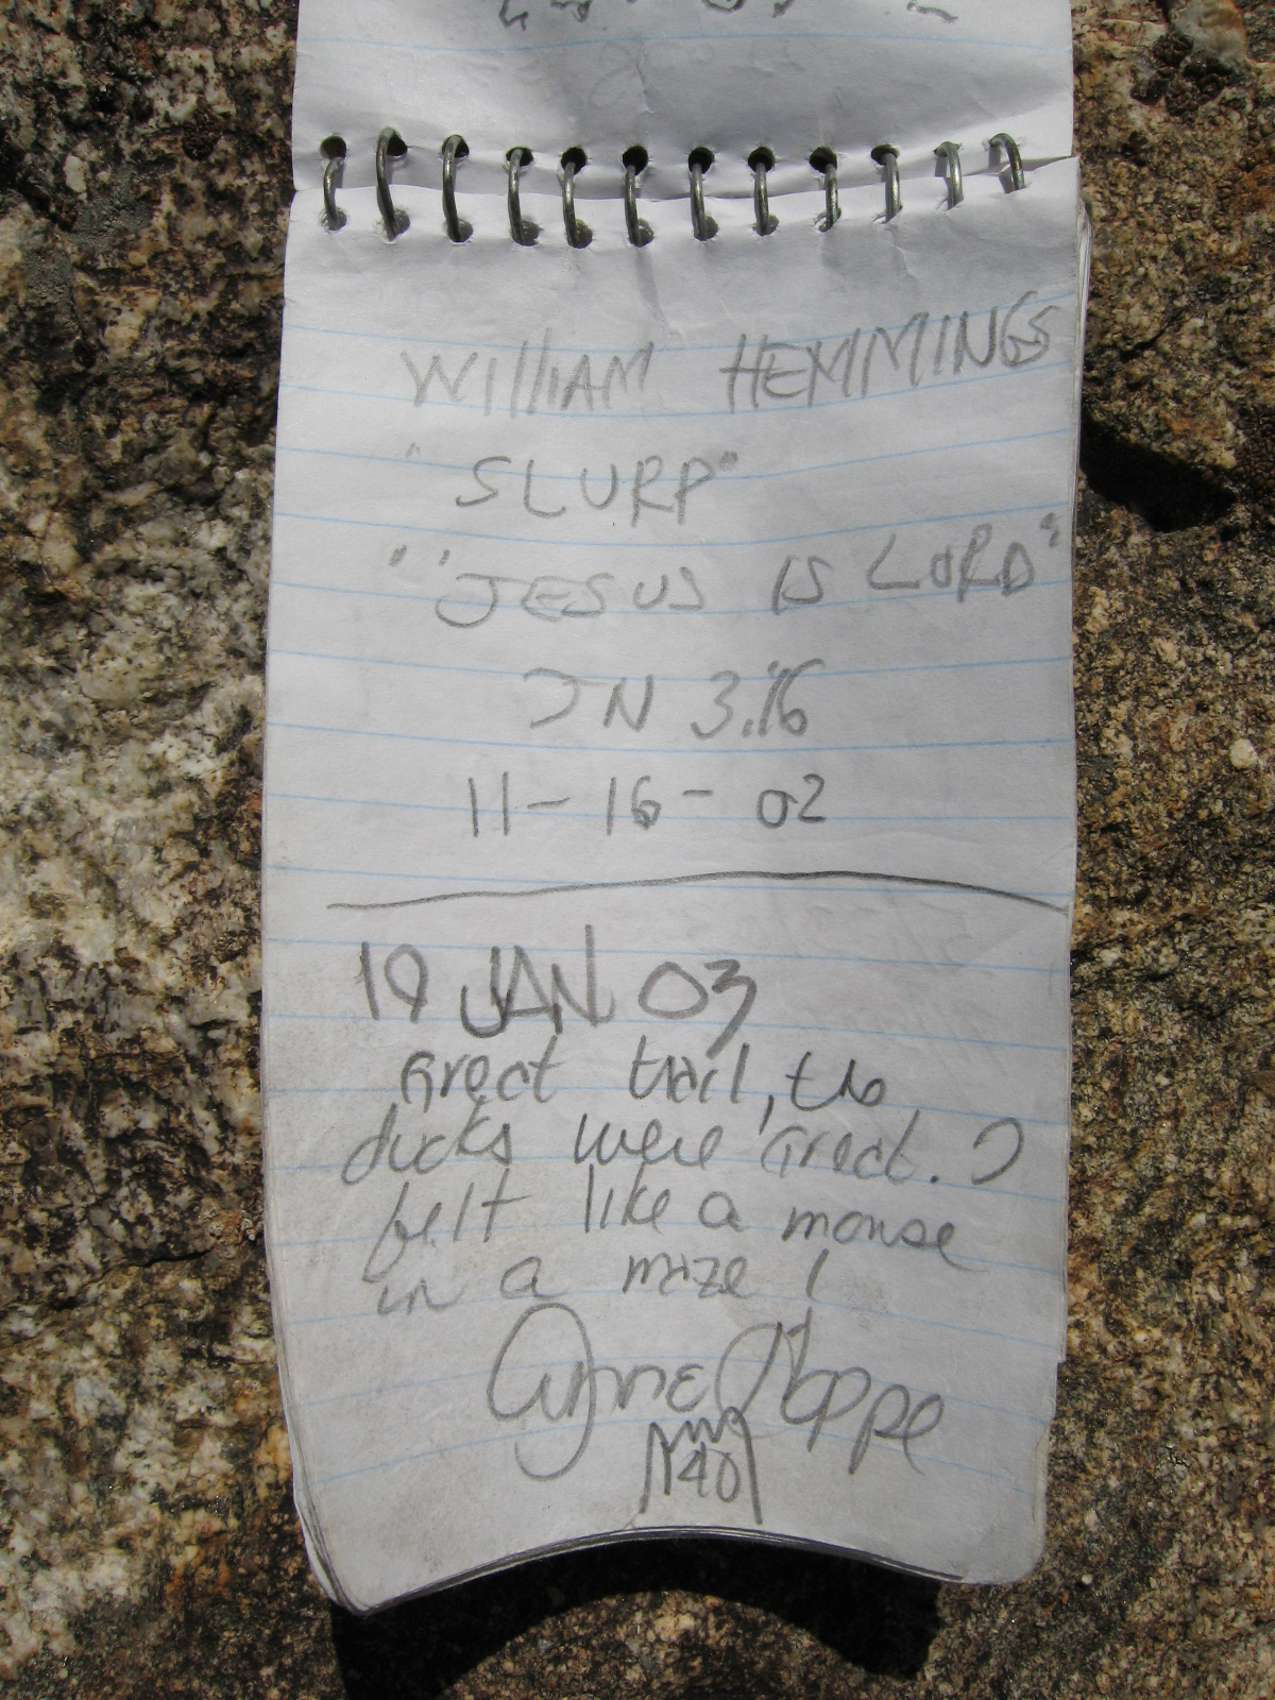 WILLIAM HEMMINGS
"SLURP"
"'JESUS IS LORD"
JN 3:16
11-16-02
19 JAN 03
Great trail, the
ducks were great. I
felt like a mouse
in a maze!
40